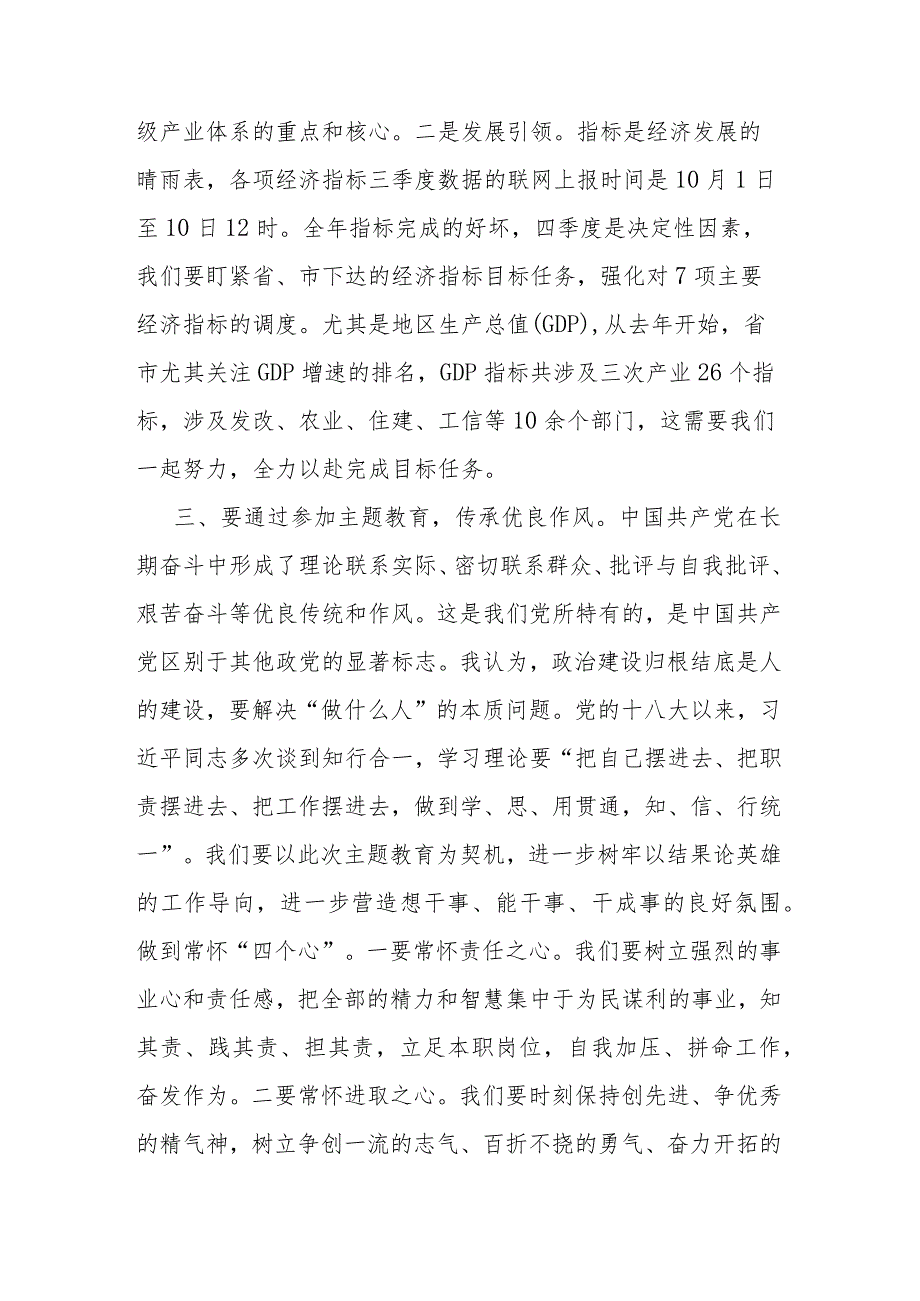 级产业体系的重点和核心。二是发展引领。指标是经济发展的
晴雨表，各项经济指标三季度数据的联网上报时间是 10 月 1 日
至 10 日 12 时。全年指标完成的好坏，四季度是决定性因素，
我们要盯紧省、市下达的经济指标目标任务，强化对 7 项主要
经济指标的调度。尤其是地区生产总值(GDP),从去年开始，省
市尤其关注 GDP 增速的排名，GDP 指标共涉及三次产业 26 个指
标，涉及发改、农业、住建、工信等 10 余个部门，这需要我们
一起努力，全力以赴完成目标任务。
三、要通过参加主题教育，传承优良作风。中国共产党在长
期奋斗中形成了理论联系实际、密切联系群众、批评与自我批评、
艰苦奋斗等优良传统和作风。这是我们党所特有的，是中国共产
党区别于其他政党的显著标志。我认为，政治建设归根结底是人
的建设，要解决“做什么人”的本质问题。党的十八大以来，习
近平同志多次谈到知行合一，学习理论要“把自己摆进去、把职
责摆进去、把工作摆进去，做到学、思、用贯通，知、信、行统
一”。我们要以此次主题教育为契机，进一步树牢以结果论英雄
的工作导向，进一步营造想干事、能干事、干成事的良好氛围。
做到常怀“四个心”。一要常怀责任之心。我们要树立强烈的事
业心和责任感，把全部的精力和智慧集中于为民谋利的事业，知
其责、践其责、担其责，立足本职岗位，自我加压、拼命工作，
奋发作为。二要常怀进取之心。我们要时刻保持创先进、争优秀
的精气神，树立争创一流的志气、百折不挠的勇气、奋力开拓的